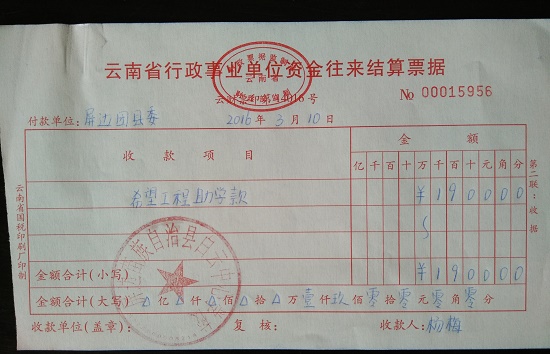 云南省行政事业单位资金往来结算票据
№ 00015956
付款单位：屏边团县委 2016年3月10日
收款项目 金额
亿千百十万千百十元角分
希望工程助学款 ¥190000
金额合计(小写) ¥190000
金额合计(大写) 亿 仟 佰 拾 万壹仟玖佰零拾零元零角零分
收款单位(盖章)： 复核： 收款人：杨梅
第二联：收据
云南省国税印刷厂印制
族自治县白云中心学校